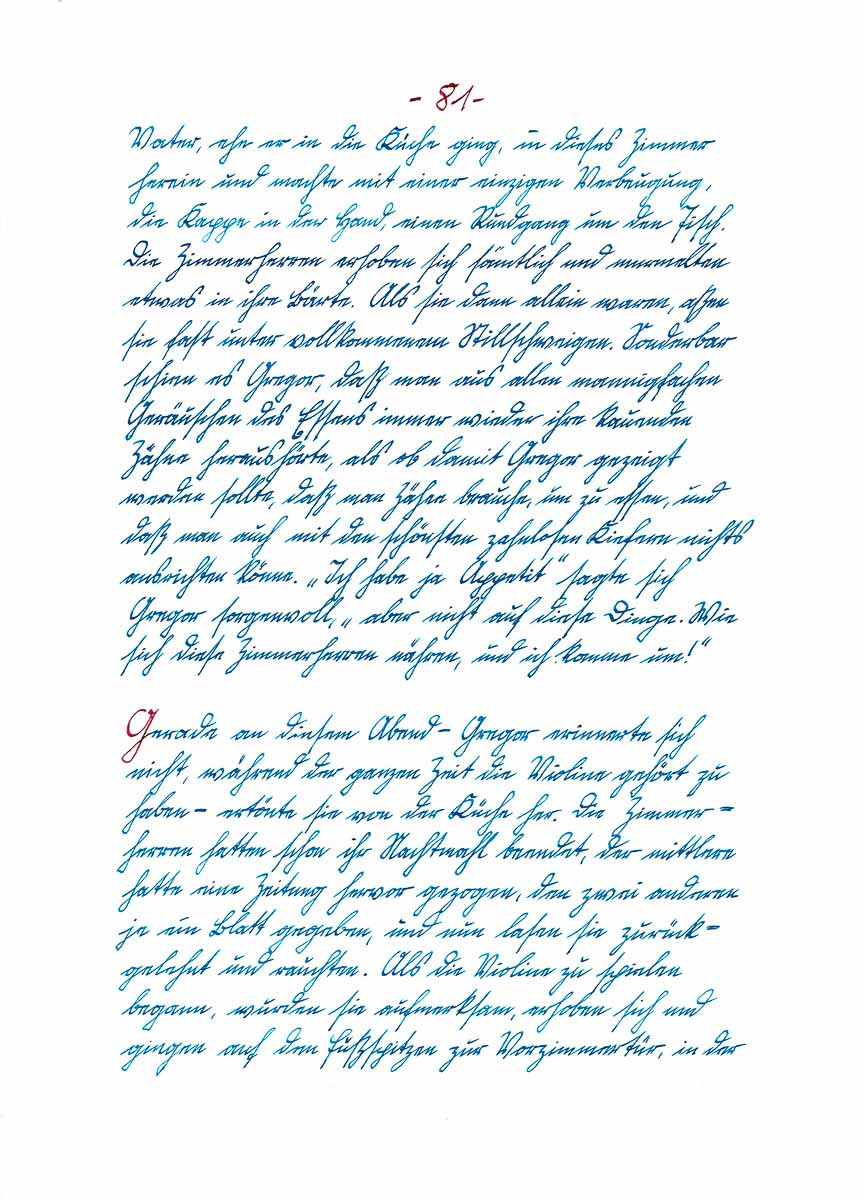 - 81 -
Vater, ehe er in die Küche ging, in dieses Zimmer
herein und machte mit einer einzigen Verbeugung,
die Kappe in der Hand, einen Rundgang um den Tisch.
Die Zimmerherren erhoben sich sämtlich und murmelten
etwas in ihre Bärte. Als sie dann allein waren, aßen
sie fast unter vollkommenem Stillschweigen. Sonderbar
schien es Gregor, daß man aus allen mannigfachen
Geräuschen des Essens immer wieder ihre kauenden
Zähne heraushörte, als ob damit Gregor gezeigt
werden sollte, daß man Zähne brauche, um zu essen, und
daß man auch mit den schönsten zahnlosen Kiefern nichts
ausrichten könne. „Ich habe ja Appetit“ sagte sich
Gregor sorgenvoll, „aber nicht auf diese Dinge. Wie
sich diese Zimmerherren nähren, und ich komme um!“
Gerade an diesem Abend – Gregor erinnerte sich
nicht, während der ganzen Zeit die Violine gehört zu
haben – ertönte sie von der Küche her. Die Zimmer=
herren hatten schon ihr Nachtmahl beendet, der mittlere
hatte eine Zeitung hervor gezogen, den zwei anderen
je ein Blatt gegeben, und nun lasen sie zurück=
gelehnt und rauchten. Als die Violine zu spielen
begann, wurden sie aufmerksam, erhoben sich und
gingen auf den Fußspitzen zur Vorzimmertür, in der